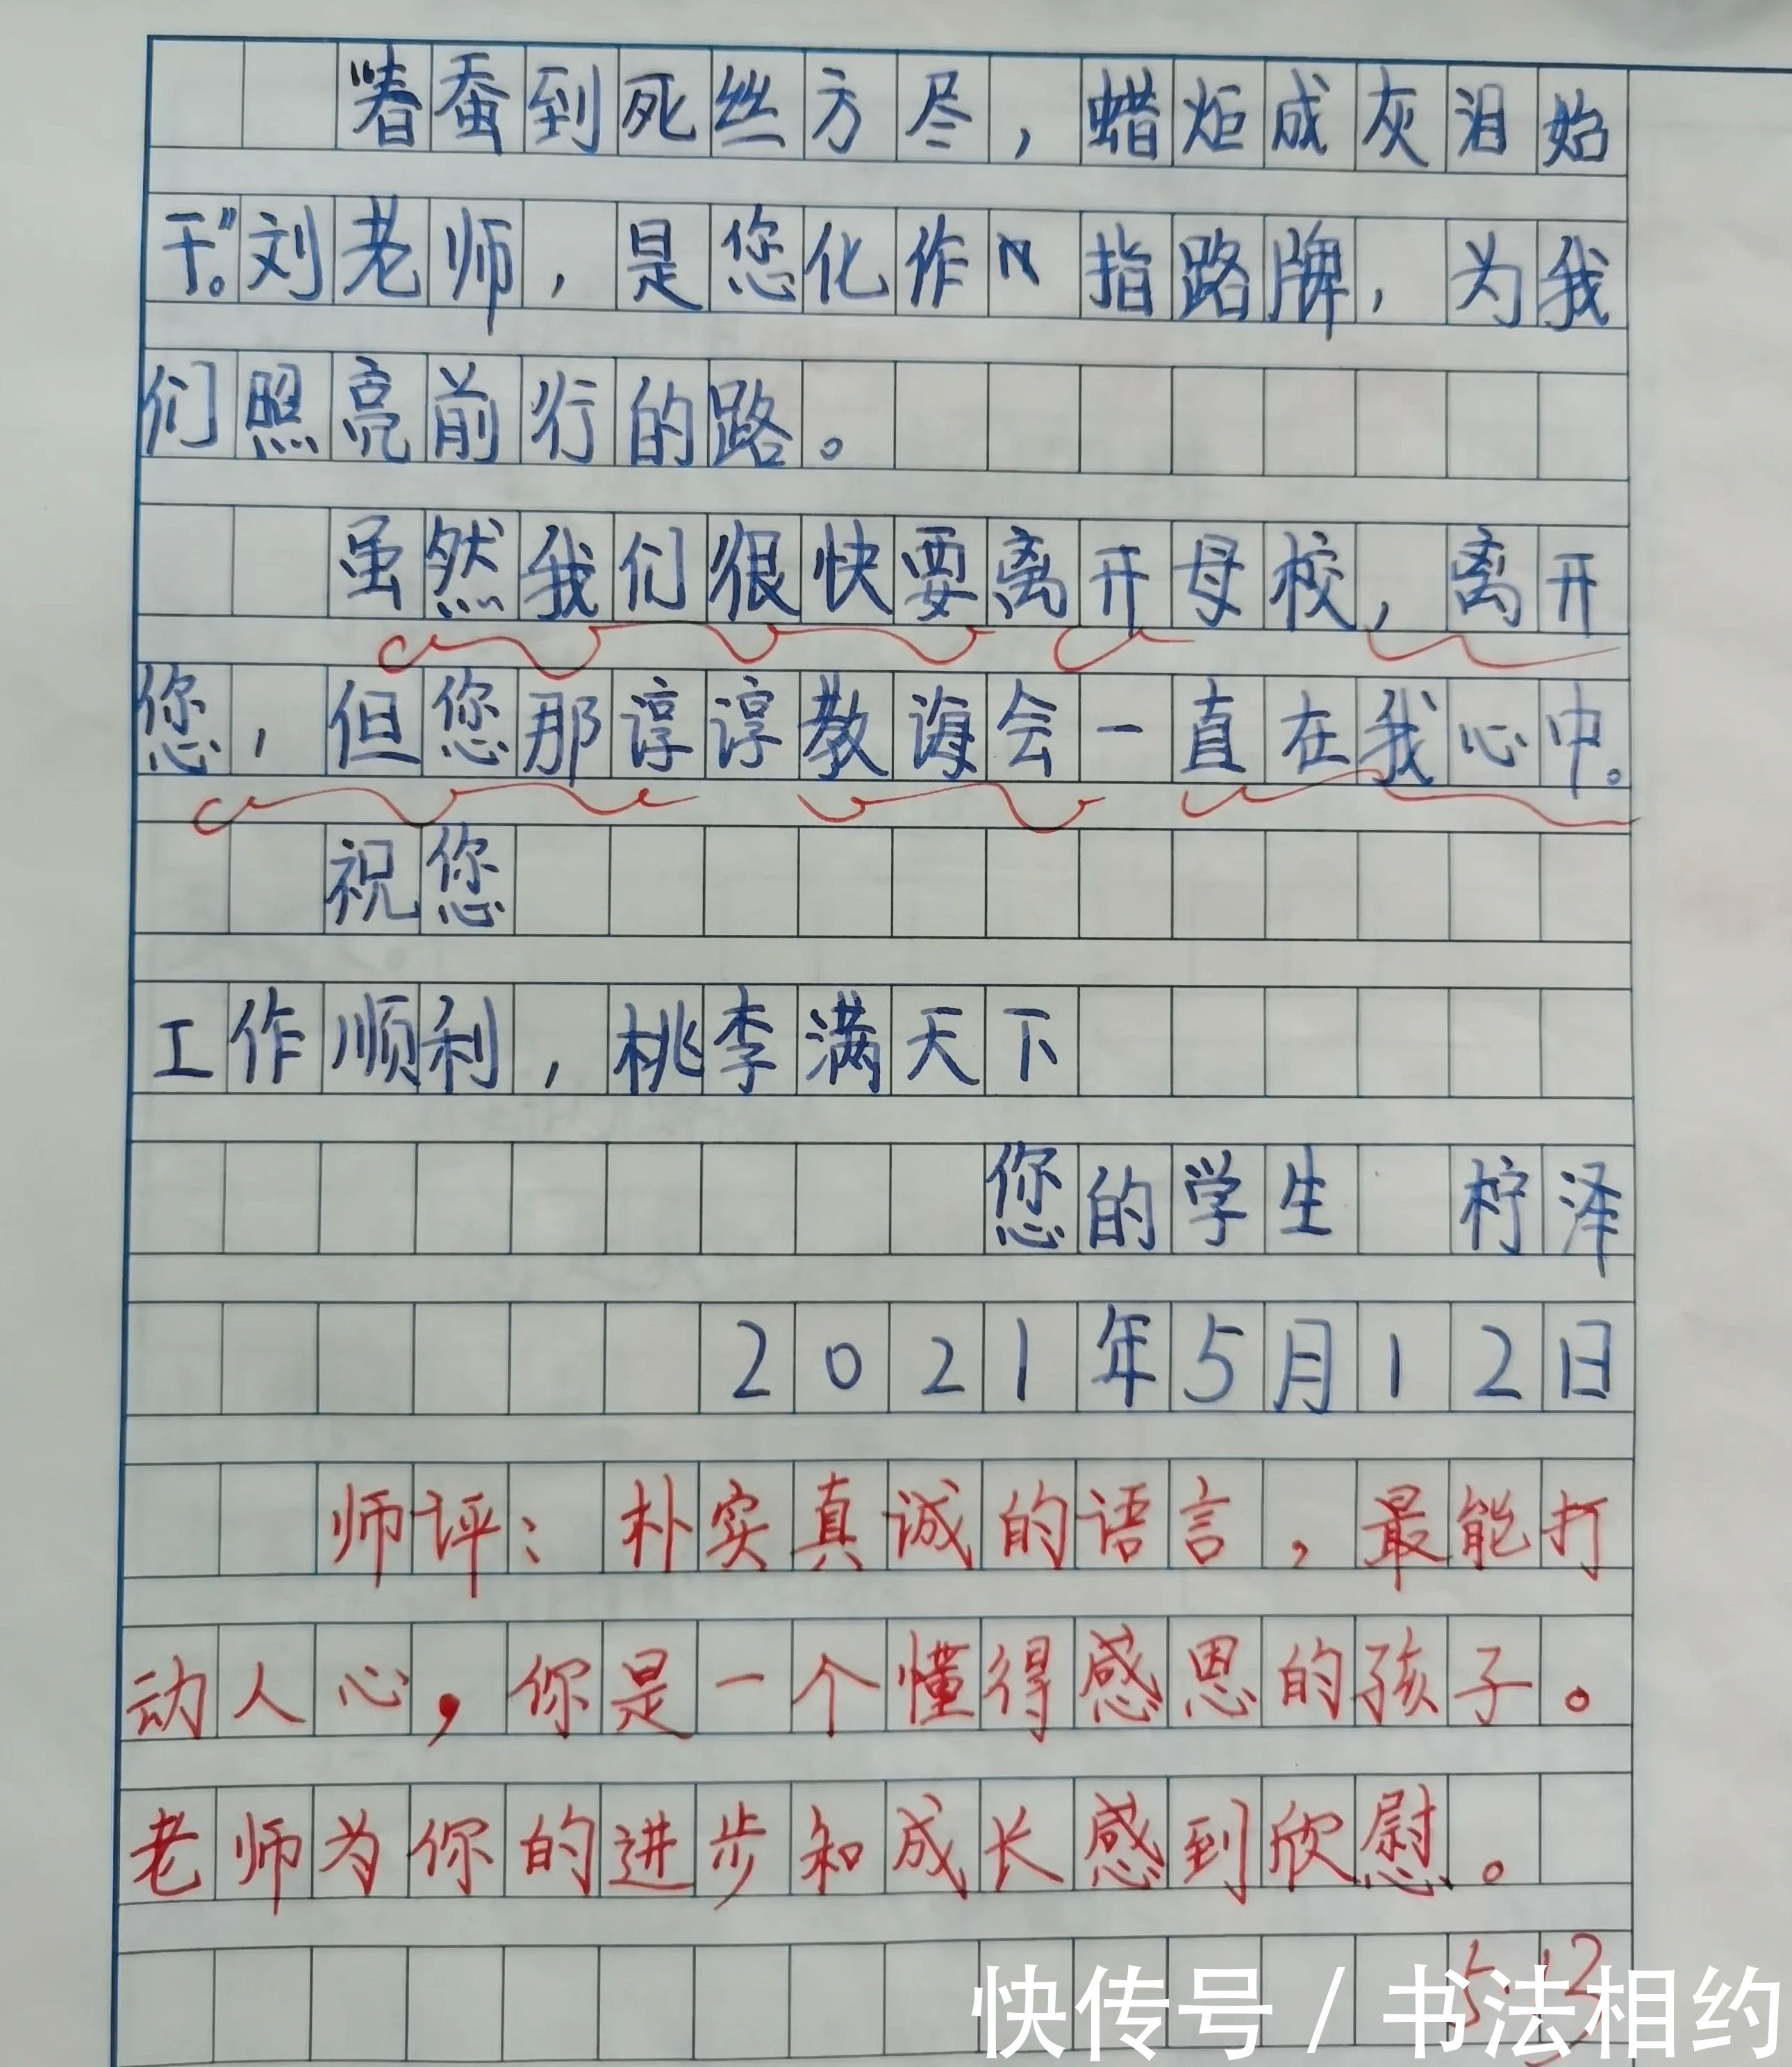 “春蚕到死丝方尽，蜡炬成灰泪始
干。”刘老师，是您化作指路牌，为我
们照亮前行的路。
虽然我们很快要离开母校，离开
您，但您那谆谆教诲会一直在我心中。
祝您
工作顺利，桃李满天下
您的学生 柠泽
2021年5月12日
师评：朴实真诚的语言，最能打
动人心，你是一个懂得感恩的孩子。
老师为你的进步和成长感到欣慰。
5.13
快传号/书法相约